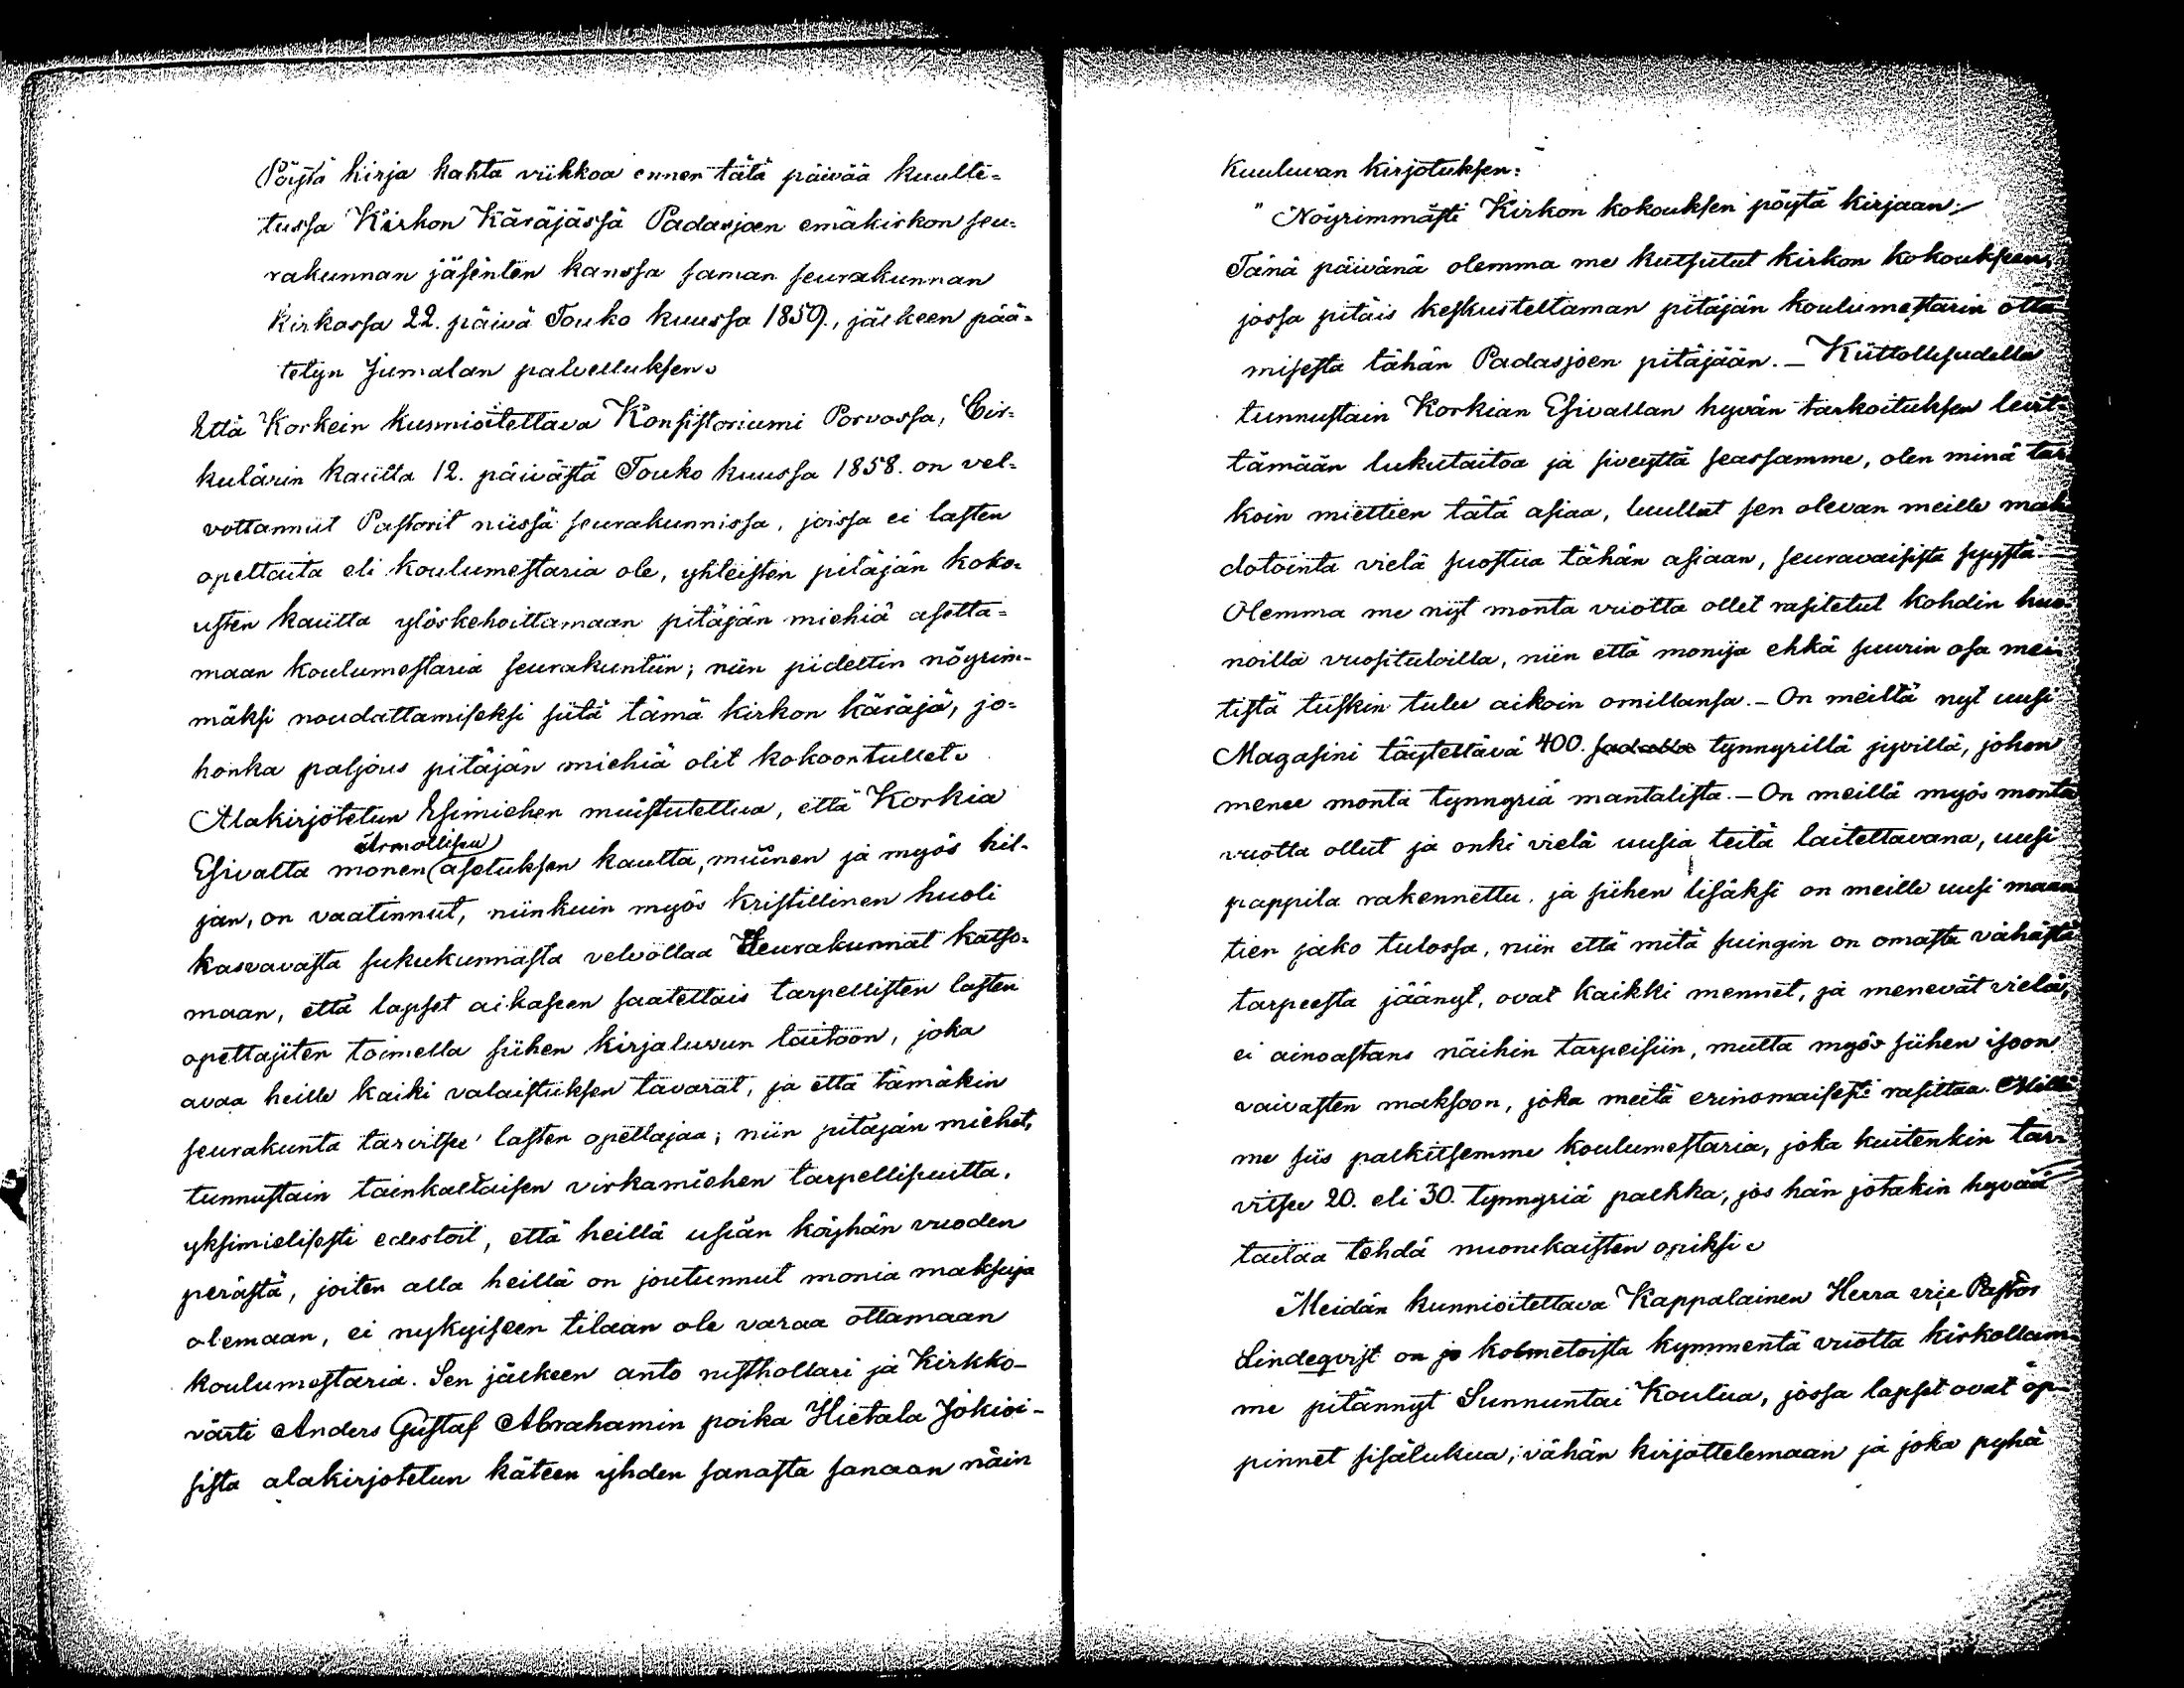 Pöytä kirja kahta viikkoa ennen tätä päivää kuulte-
tussa Kirkon Käräjässä Padasjoen emäkirkon seu-
rakunnan jäsenten kanssa saman seurakunnan
Kirkossa 22. päivä Touko kuussa 1859., jälkeen pää-
tetyn Jumalan palvelluksen.
Että Korkein kunnioitettava Konsistoriumi Porvossa, Cir-
kulärin kautta 12. päivästä Touko kuussa 1858. on vel-
vottannut Pastorit niissä seurakunnissa, joissa ei lasten
opettaita eli koulumestaria ole, yhteisten pitäjän koko-
usten kautta ylöskehoittamaan pitäjän miehiä asetta-
maan koulumestaria seurakuntiin; niin pidettin nöyrim-
mäksi noudattamiseksi siitä tämä kirkon käräjä, jo-
honka paljous pitäjän miehiä olit kokoontullet.
Alakirjotetun Esimiehen muistutettua, että Korkia
Esivalta monen (armollisen) asetuksen kautta, muinen ja myös hil-
jan, on vaatinnut, niinkuin myös kristillinen huoli
kasvavasta sukukunnasta velvottaa Seurakunnat katso-
maan, että lapset aikaseen saatettais tarpellisten lasten
opettajiten toimella siihen kirjaluvun taitoon, joka
avaa heille kaiki valaistuksen tavarat, ja että tämäkin
seurakunta tarvitsee lasten opettajaa; niin pitäjän miehet,
tunnustain tainkaltaisen virkamiehen tarpellisuutta,
yksimielisesti edestoit, että heillä usian köyhän vuoden
perästä, joiten alla heillä on joutunnut monia maksuja
olemaan, ei nykyiseen tilaan ole varaa ottamaan
koulumestaria. Sen jälkeen anto rusthollari ja Kirkko-
värti Anders Gustaf Abrahamin poika Hietala Jokioi-
sista alakirjotetun käteen yhden sanasta sanaan näin
Kuuluvan kirjotuksen:
"Nöyrimmästi Kirkon kokouksen pöytä kirjaan:/
Tänä päivänä olemma me kutsutut kirkon kokouksen,
jossa pitäis keskusteltaman pitäjän koulumestarin otta-
misesta tähän Padasjoen pitäjään. – Kiittollisudella
tunnustain Korkian Esivallan hyvän tarkoituksen levit-
tämään lukutaitoa ja siveyttä seassamme, olen minä tar-
koin miettien tätä asiaa, luullut sen olevan meille mah-
dotointa vielä suostua tähän asiaan, seuravaisista syystä
Olemma me nyt monta vuotta ollet rasitetut kohdin huo-
noilla vuosituloilla, niin että monija ehkä suurin osa mei-
tistä tuskin tulee aikoin omillansa. – On meiltä nyt uusi
Magasini täytettävä 400. sadalla tynnyrillä jyvillä, johon
menee monta tynnyriä mantalista. – On meillä myös monta
vuotta ollut ja onki vielä uusia teitä laitettavana, uusi
pappila rakennettu, ja siihen lisäksi on meille uusi maan
tien jako tulossa, niin että mitä suingin on omasta vähästä
tarpeesta jäänyt, ovat kaikki mennet, ja menevät vielä,
ei ainoastans näihin tarpeisiin, mutta myös siihen isoon
vaivasten maksoon, joka meitä erinomaisesti rasittaa. Millä
me siis palkitsemme koulumestaria, joka kuitenkin tar-
vitsee 20. eli 30. tynnyriä palkka, jos hän jotakin hyvää
taitaa tehdä nuorukaisten opiksi.
Meidän kunnioitettava Kappalainen Herra vice Pastor
Lindeqvist on jo kolmetoista kymmentä vuotta kirkollam-
me pitännyt Sunnuntai Koulua, jossa lapset ovat op-
pinnet sisälukua, vähän kirjottelemaan ja joka pyhä